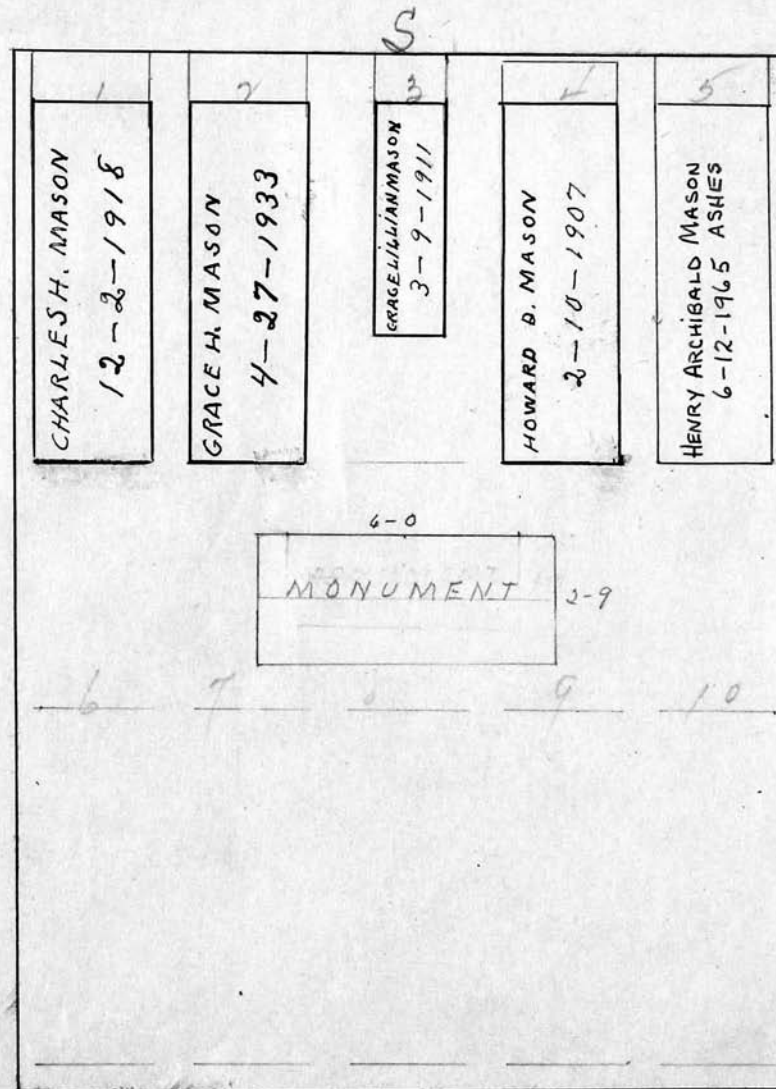 S
1
2
3
4
5
CHARLES H. MASON
12-2-1918
GRACE H. MASON
4-27-1933
GRACE LILLIAN MASON
3-9-1911
HOWARD D. MASON
2-10-1907
HENRY ARCHIBALD MASON
6-12-1965 ASHES
6-0
MONUMENT
2-9
6
7
9
10